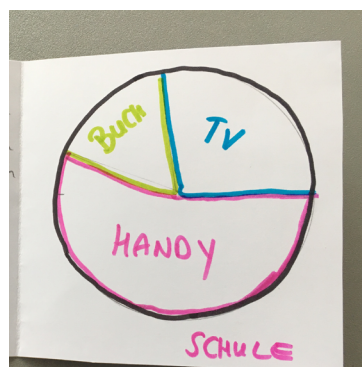 BUCH
TV
HANDY
SCHULE